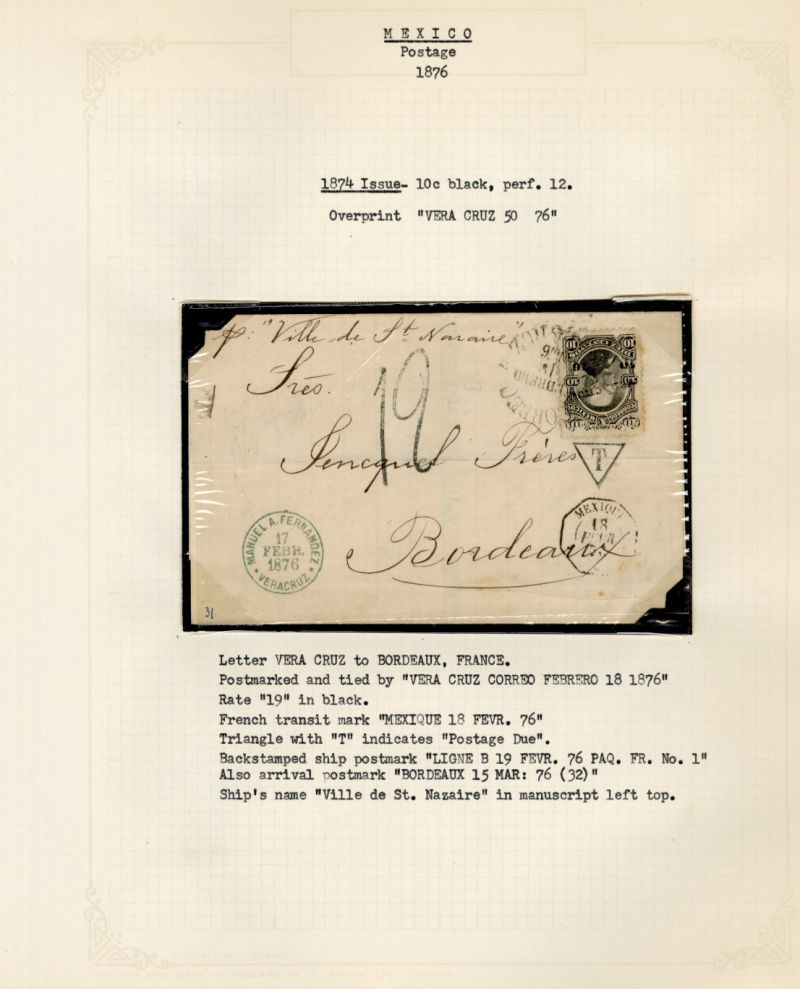 MEXICO
Postage
1876
1874 Issue- 10c black, perf. 12.
Overprint "VERA CRUZ 50 76"
p. "Ville de St. Nazaire"
Srēs.
19
Jencquel Frères
T
MEXIQUE
18
FEVR
Bordeaux
MANUEL A. FERNANDEZ
17
FEBR.
1876
* VERACRUZ *
31
Letter VERA CRUZ to BORDEAUX, FRANCE.
Postmarked and tied by "VERA CRUZ CORREO FEBRERO 18 1876"
Rate "19" in black.
French transit mark "MEXIQUE 18 FEVR. 76"
Triangle with "T" indicates "Postage Due".
Backstamped ship postmark "LIGNE B 19 FEVR. 76 PAQ. FR. No. 1"
Also arrival postmark "BORDEAUX 15 MAR: 76 (32)"
Ship's name "Ville de St. Nazaire" in manuscript left top.